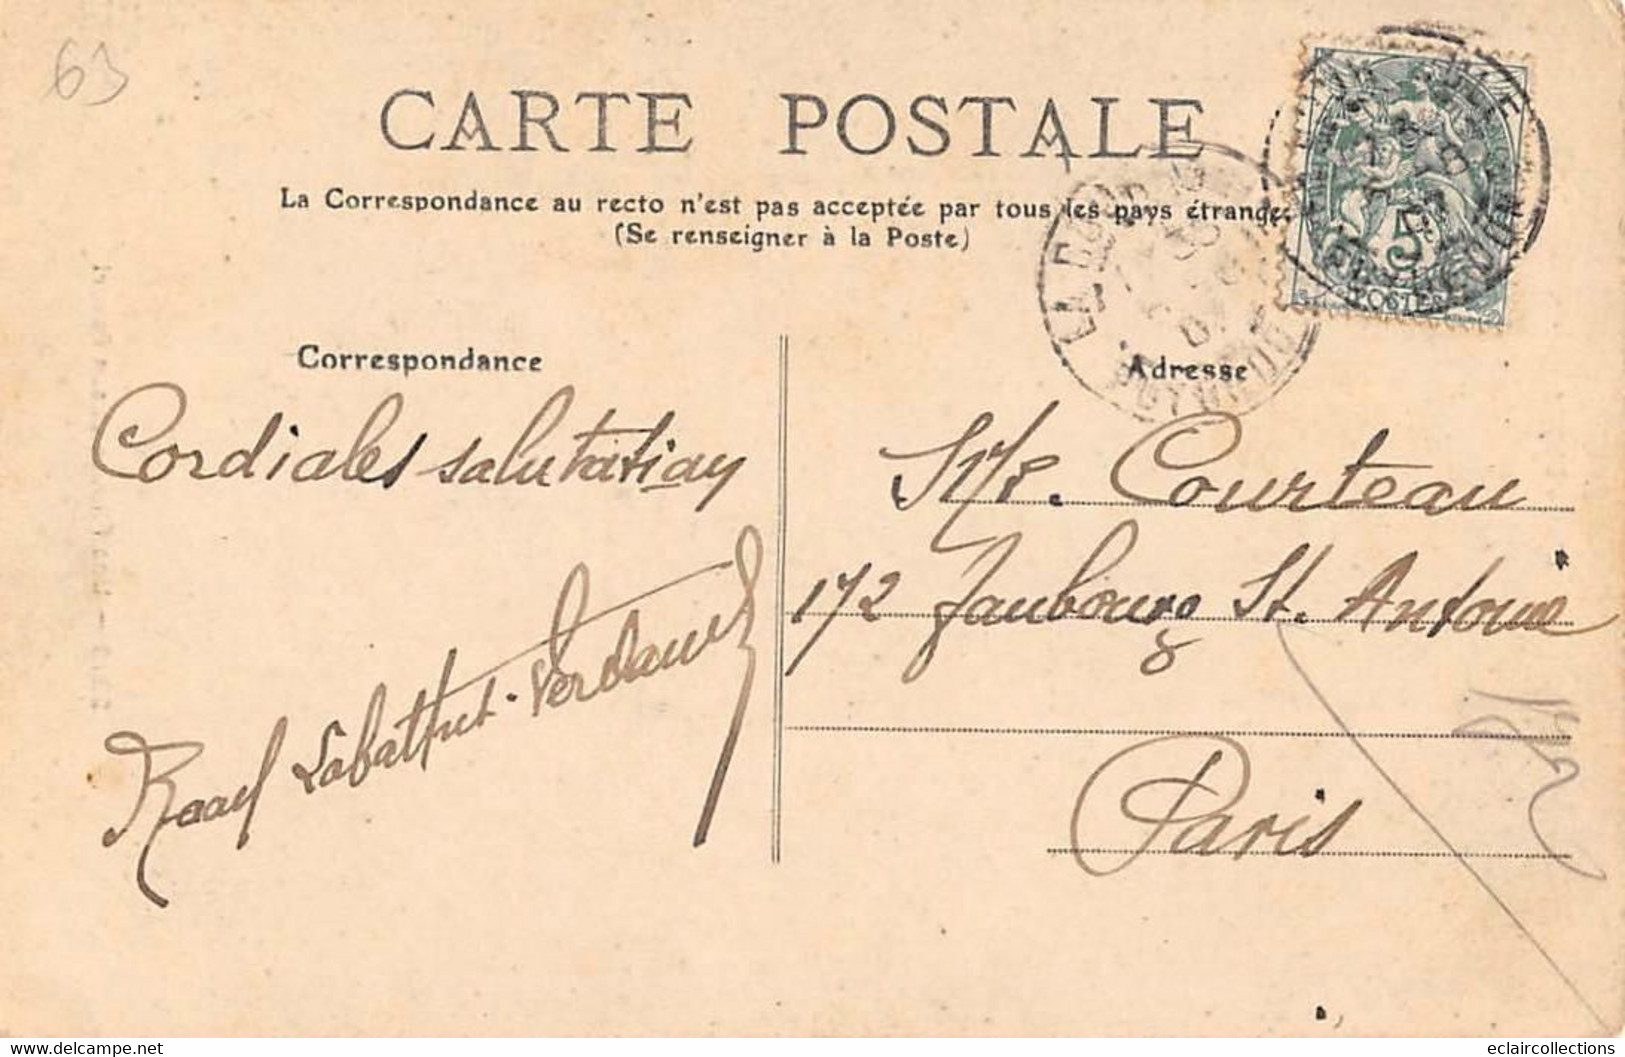 63
CARTE POSTALE
La Correspondance au recto n'est pas acceptée par tous les pays étrangers
(Se renseigner à la Poste)
Correspondance
Adresse
5
POSTES
Cordiales salutations
Mr. Courteau
172 Faubourg St. Antoine
Paris
LA BOURBOULE
PUY-DE-DOME
delcampe.net
eclaircollections